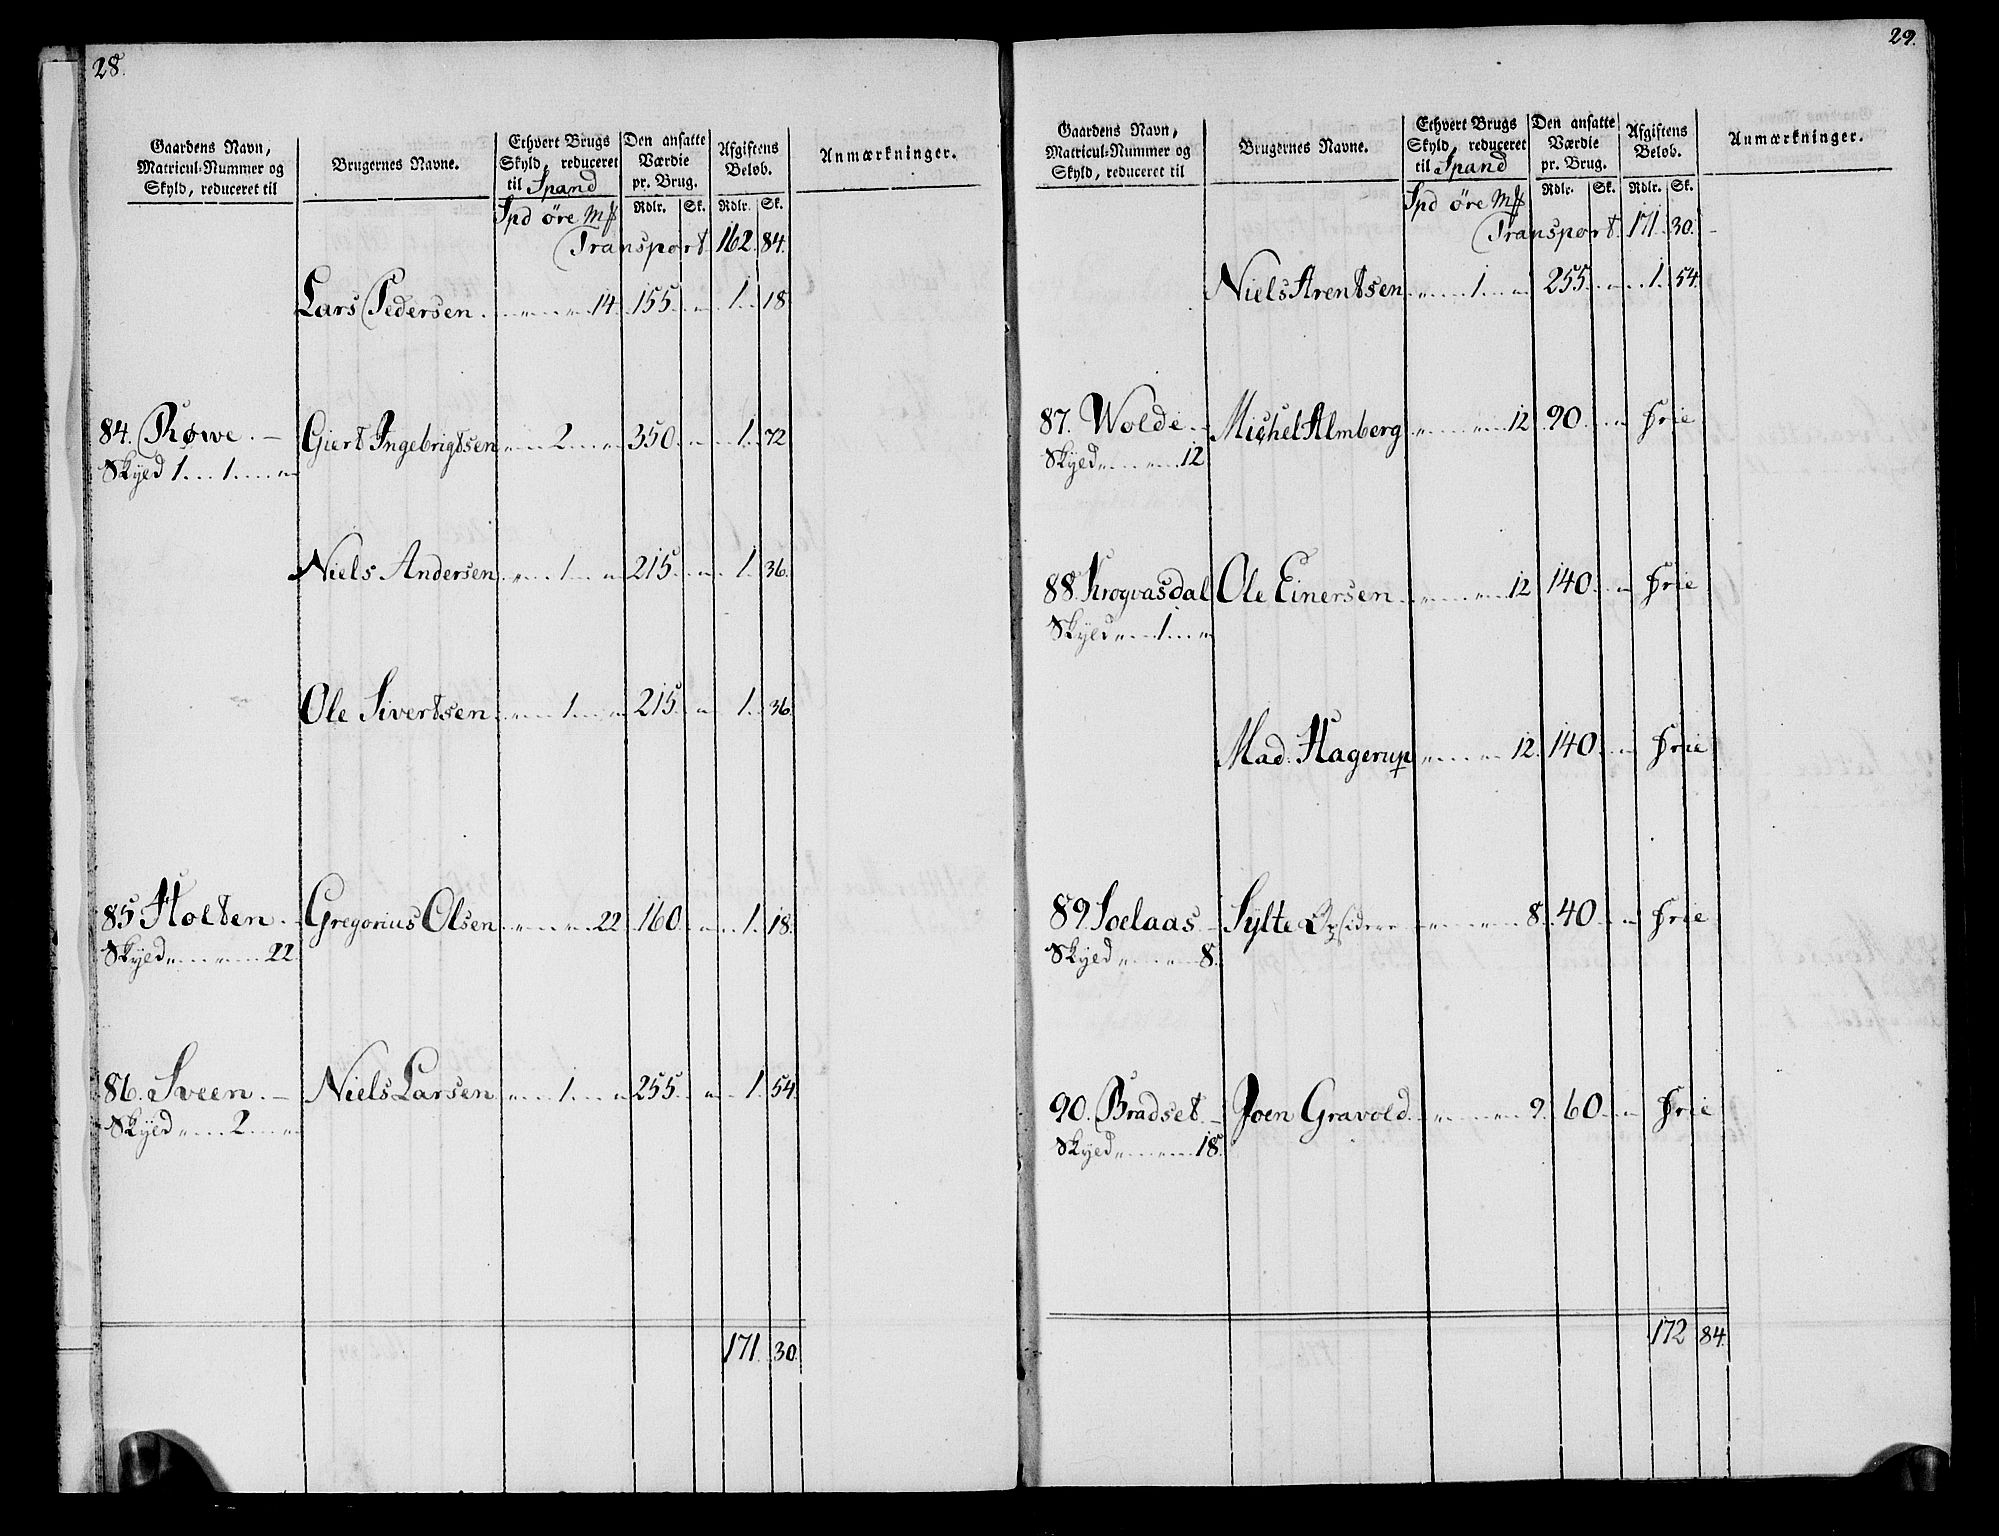 28.
Gaardens Navn, Matricul-Nummer og Skyld, reduceret til | Brugernes Navne. | Ethvert Brugs Skyld, reduceret til Spand | Den ansatte Værdie pr. Brug. | Afgiftens Beløb. | Anmærkninger.
Spd øre Mß | Rdlr. | Sk. | Rdlr. | Sk.
Transport 162. 84.
Lars Pedersen . . „ . . „ . 14. 155. „ . 1. 18
84. Røwe. — Giert Ingebrigtsen „ . . 2. . „ 350. „ . 1. 72
Skyed 1 . . . 1 . . . „
Niels Andersen . „ . . 1 . . „ 215. „ . 1. 36.
Ole Sivertsen . „ . . 1 . . „ 215. „ 1. 36.
85 Holten. Gregorius Olsen . „ . . „ . 22 160 „ . 1. 18.
Skyed „ . . . „ . . . 22.
86. Sveen. — Niels Larsen . „ . . 1. . . „ 255. „ . 1. 54.
Skyed „ . . . 2 . . . „
171. 30.
29.
Gaardens Navn, Matricul-Nummer og Skyld, reduceret til | Brugernes Navne. | Ethvert Brugs Skyld, reduceret til Spand | Den ansatte Værdie pr. Brug. | Afgiftens Beløb. | Anmærkninger.
Spd øre Mß | Rdlr. | Sk. | Rdlr. | Sk.
Transport. 171. 30.
Niels Arentsen . „ . . 1. . . „ 255. „ . 1. 54.
87. Wolde. Michel Almberg . „ . . . „ . 12 90 . . „ Frie
Skyed „ . . . „ . . 12
88. Krogvasdal Ole Einersen . „ . . . „ . 12 140. . „ Frie
Skyed „ . . . 1 . . . „
Mad. Hagerup . „ . . . „ 12. 140. . „ Frie
89 Soelaas. Sylte Opsidere . „ . . „ 8. 40. . „ Frie
Skyed „ . . . „ . . 8.
90. Bradset. Joen Gravold . „ . . „ . 9. 60. . „ Frie
Skyed „ . . . „ . . 18.
172 84.